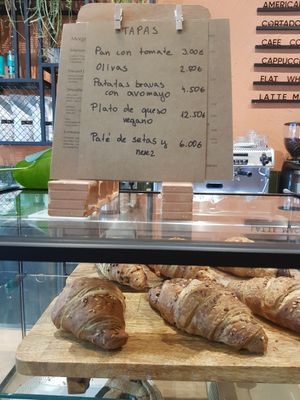 TAPAS
Pan con tomate 3.00€
Olivas 2.50€
Patatas bravas
con avomayo 4.50€
Plato de queso
vegano 12.50€
Paté de setas y
nuez 6.00€
AMERICAN
CORTADO
CAFE CO
CAPPUCC
FLAT WH
LATTE M